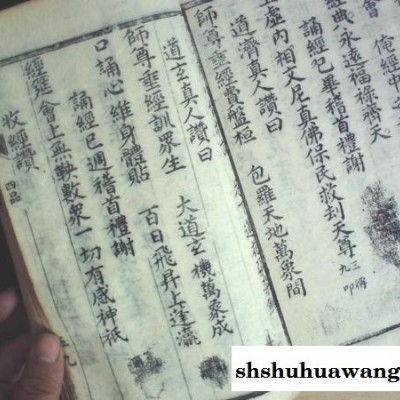 會 俺經中
經典永遠福祿濟天
誦經已畢稽首禮謝
上虛內相文尼真佛保民救刼天尊 三 九 叩
道濟真人讚曰 包羅天地萬象間
師尊垂經費盤桓
道玄真人讚曰 大道玄機萬象成
師尊垂經訓眾生 百日飛昇上蓬瀛
口誦心維身體貼
誦經已週稽首禮謝
經筵會上無鞅數眾一切有感神祇
收經讚 四品
shshuhuawang